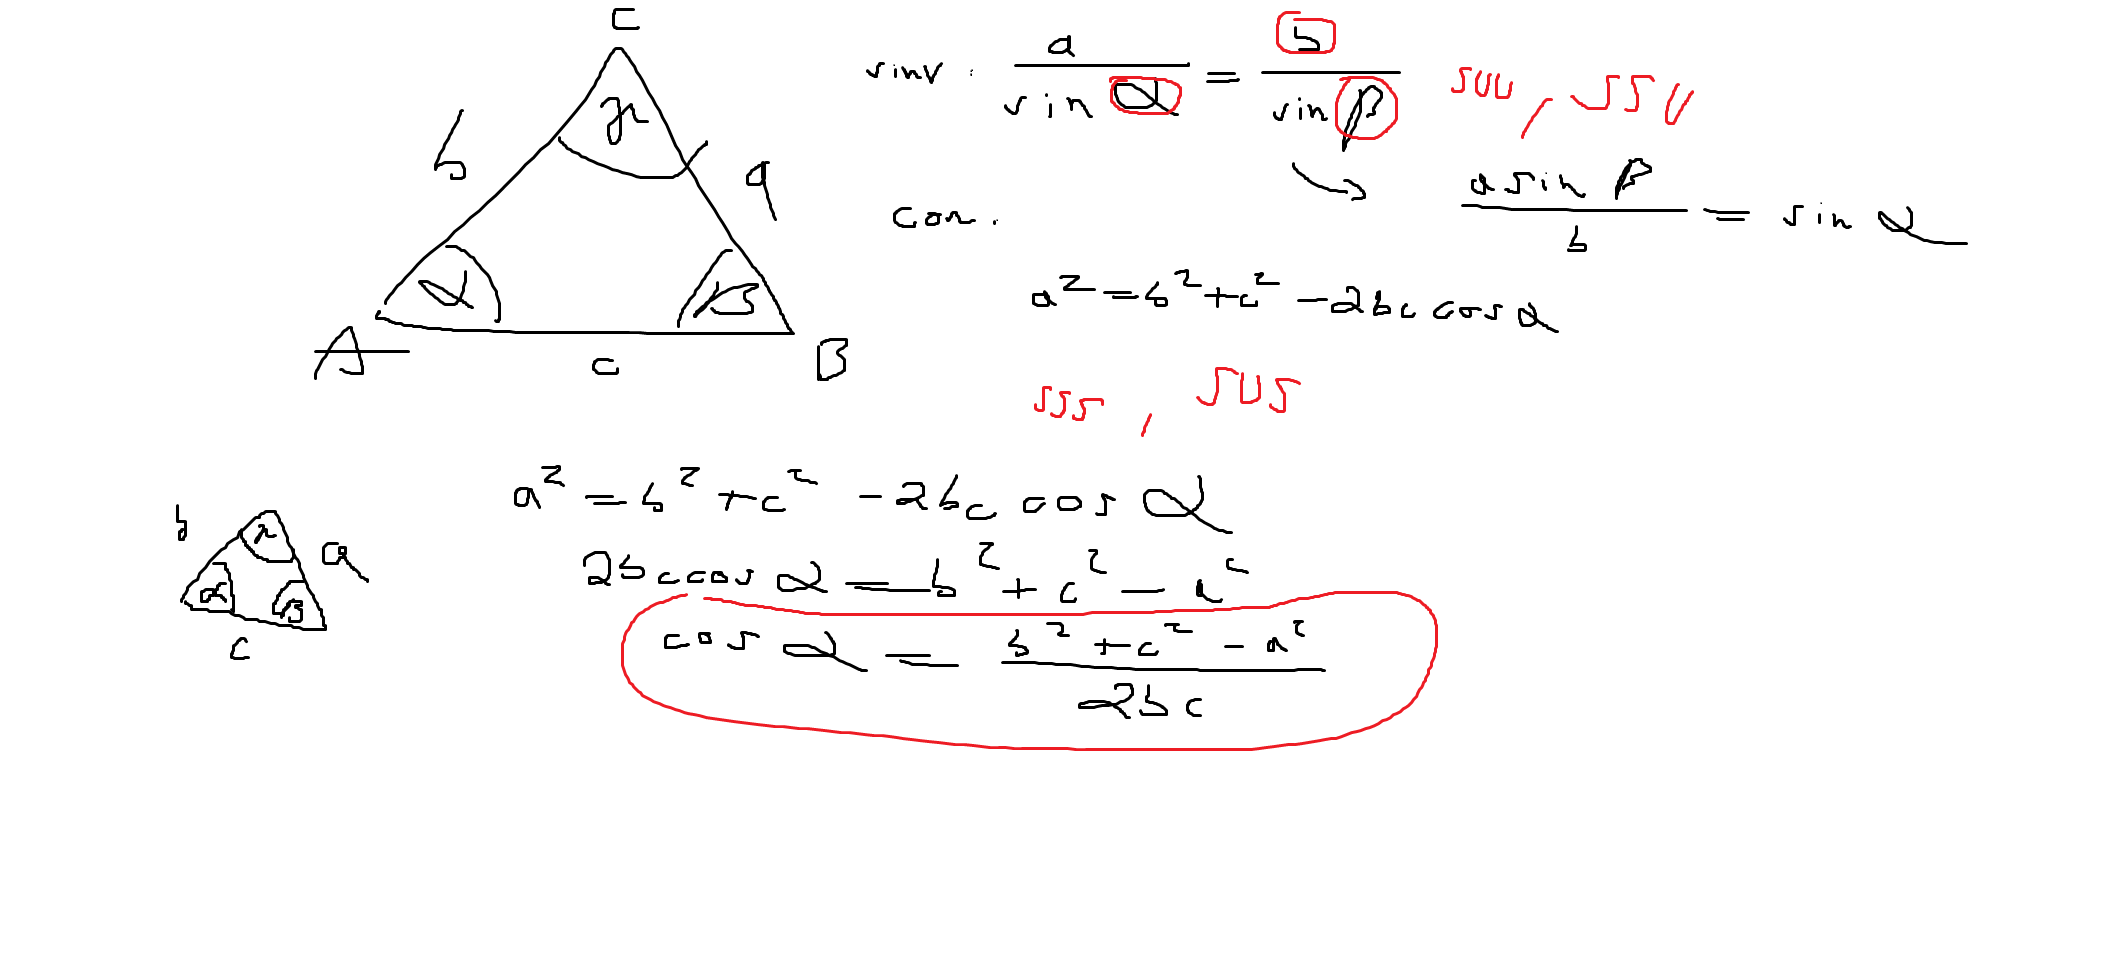 C
γ
b
a
α
β
A
c
B
sinV. a / sin α = b / sin β
suu, ssu
a sin β / b = sin α
cos.
a² = b² + c² - 2bc cos α
sss, sus
a² = b² + c² - 2bc cos α
2bc cos α = b² + c² - a²
cos α = b² + c² - a² / 2bc
b
γ
a
α
β
c